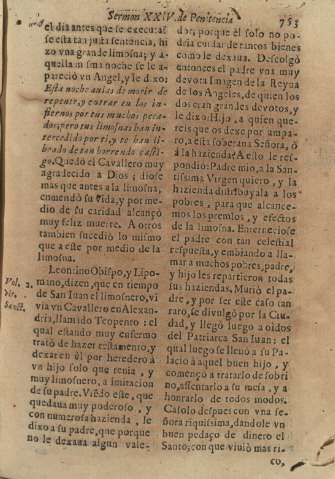 Sermon XXIV. de Penitencia
753
el dia antes que se executas
se esta tan justa sentencia, hi
zo vna grande limosna; y a-
quella misma noche se le a-
pareciò vn Angel, y le dixo:
Esta noche auias de morir de
repente, y entrar en los in-
fiernos por tus muchos peca-
dos; pero tus limosnas han in-
tercedido por ti, y te han li-
brado de tan horrendo casti-
go. Quedò el Cavallero muy
agradecido a Dios; diose
mas que antes a la limosna,
enmendò su vida, y por me-
dio de su caridad alcançò
muy feliz muerte. A otros
tambien sucediò lo mismo
que a este por medio de la
limosna.
Vol. 2.
Vit.
Sanct.
Leontino Obispo, y Lipo-
mano, dizen, que en tiempo
de San Iuan el limosnero, vi
via vn Cavallero en Alexan-
dria, llamado Teopento; el
qual estando muy enfermo
tratò de hazer testamento, y
dexar en èl por heredero à
vn hijo solo que tenia, y
muy limosnero, a imitacion
de su padre. Viẽdo este, que
quedaua muy poderoso, y
con numerosa hazienda, le
dixo a su padre, que porque
no le dexaua algun vale-
dor, porque èl solo no po-
dria cuidar de tantos bienes
como le dexaua. Descolgò
entonces el padre vna muy
devota Imagen de la Reyna
de los Angeles, de quien los
dos eran grandes devotos, y
le dixo: Hijo, a quien que-
reis que os dexe por ampa-
ro, a esta soberana Señora, ò
à la hazienda? A esto le res-
pondiò: Padre mio, a la San-
tissima Virgen quiero, y la
hazienda distribuyala a los
pobres, para que alcance-
mos los premios, y efectos
de la limosna. Enterneciose
el padre con tan celestial
respuesta, y embiando a lla-
mar a muchos pobres, padre,
y hijo les repartieron todas
sus haziendas. Muriò el pa-
dre, y por ser este caso tan
raro, se divulgò por la Ciu-
dad, y llegò luego a oidos
del Patriarca San Iuan: el
qual luego se lleuò a su Pa-
lacio à aquel buen hijo, y
començò a tratarle de sobri
no, assentarlo a su mesa, y a
honrarlo de todos modos.
Casolo despues con vna se-
ñora riquissima, dandole vn
buen pedaço de dinero el
Santo; con que viuiò mas ri-
co,